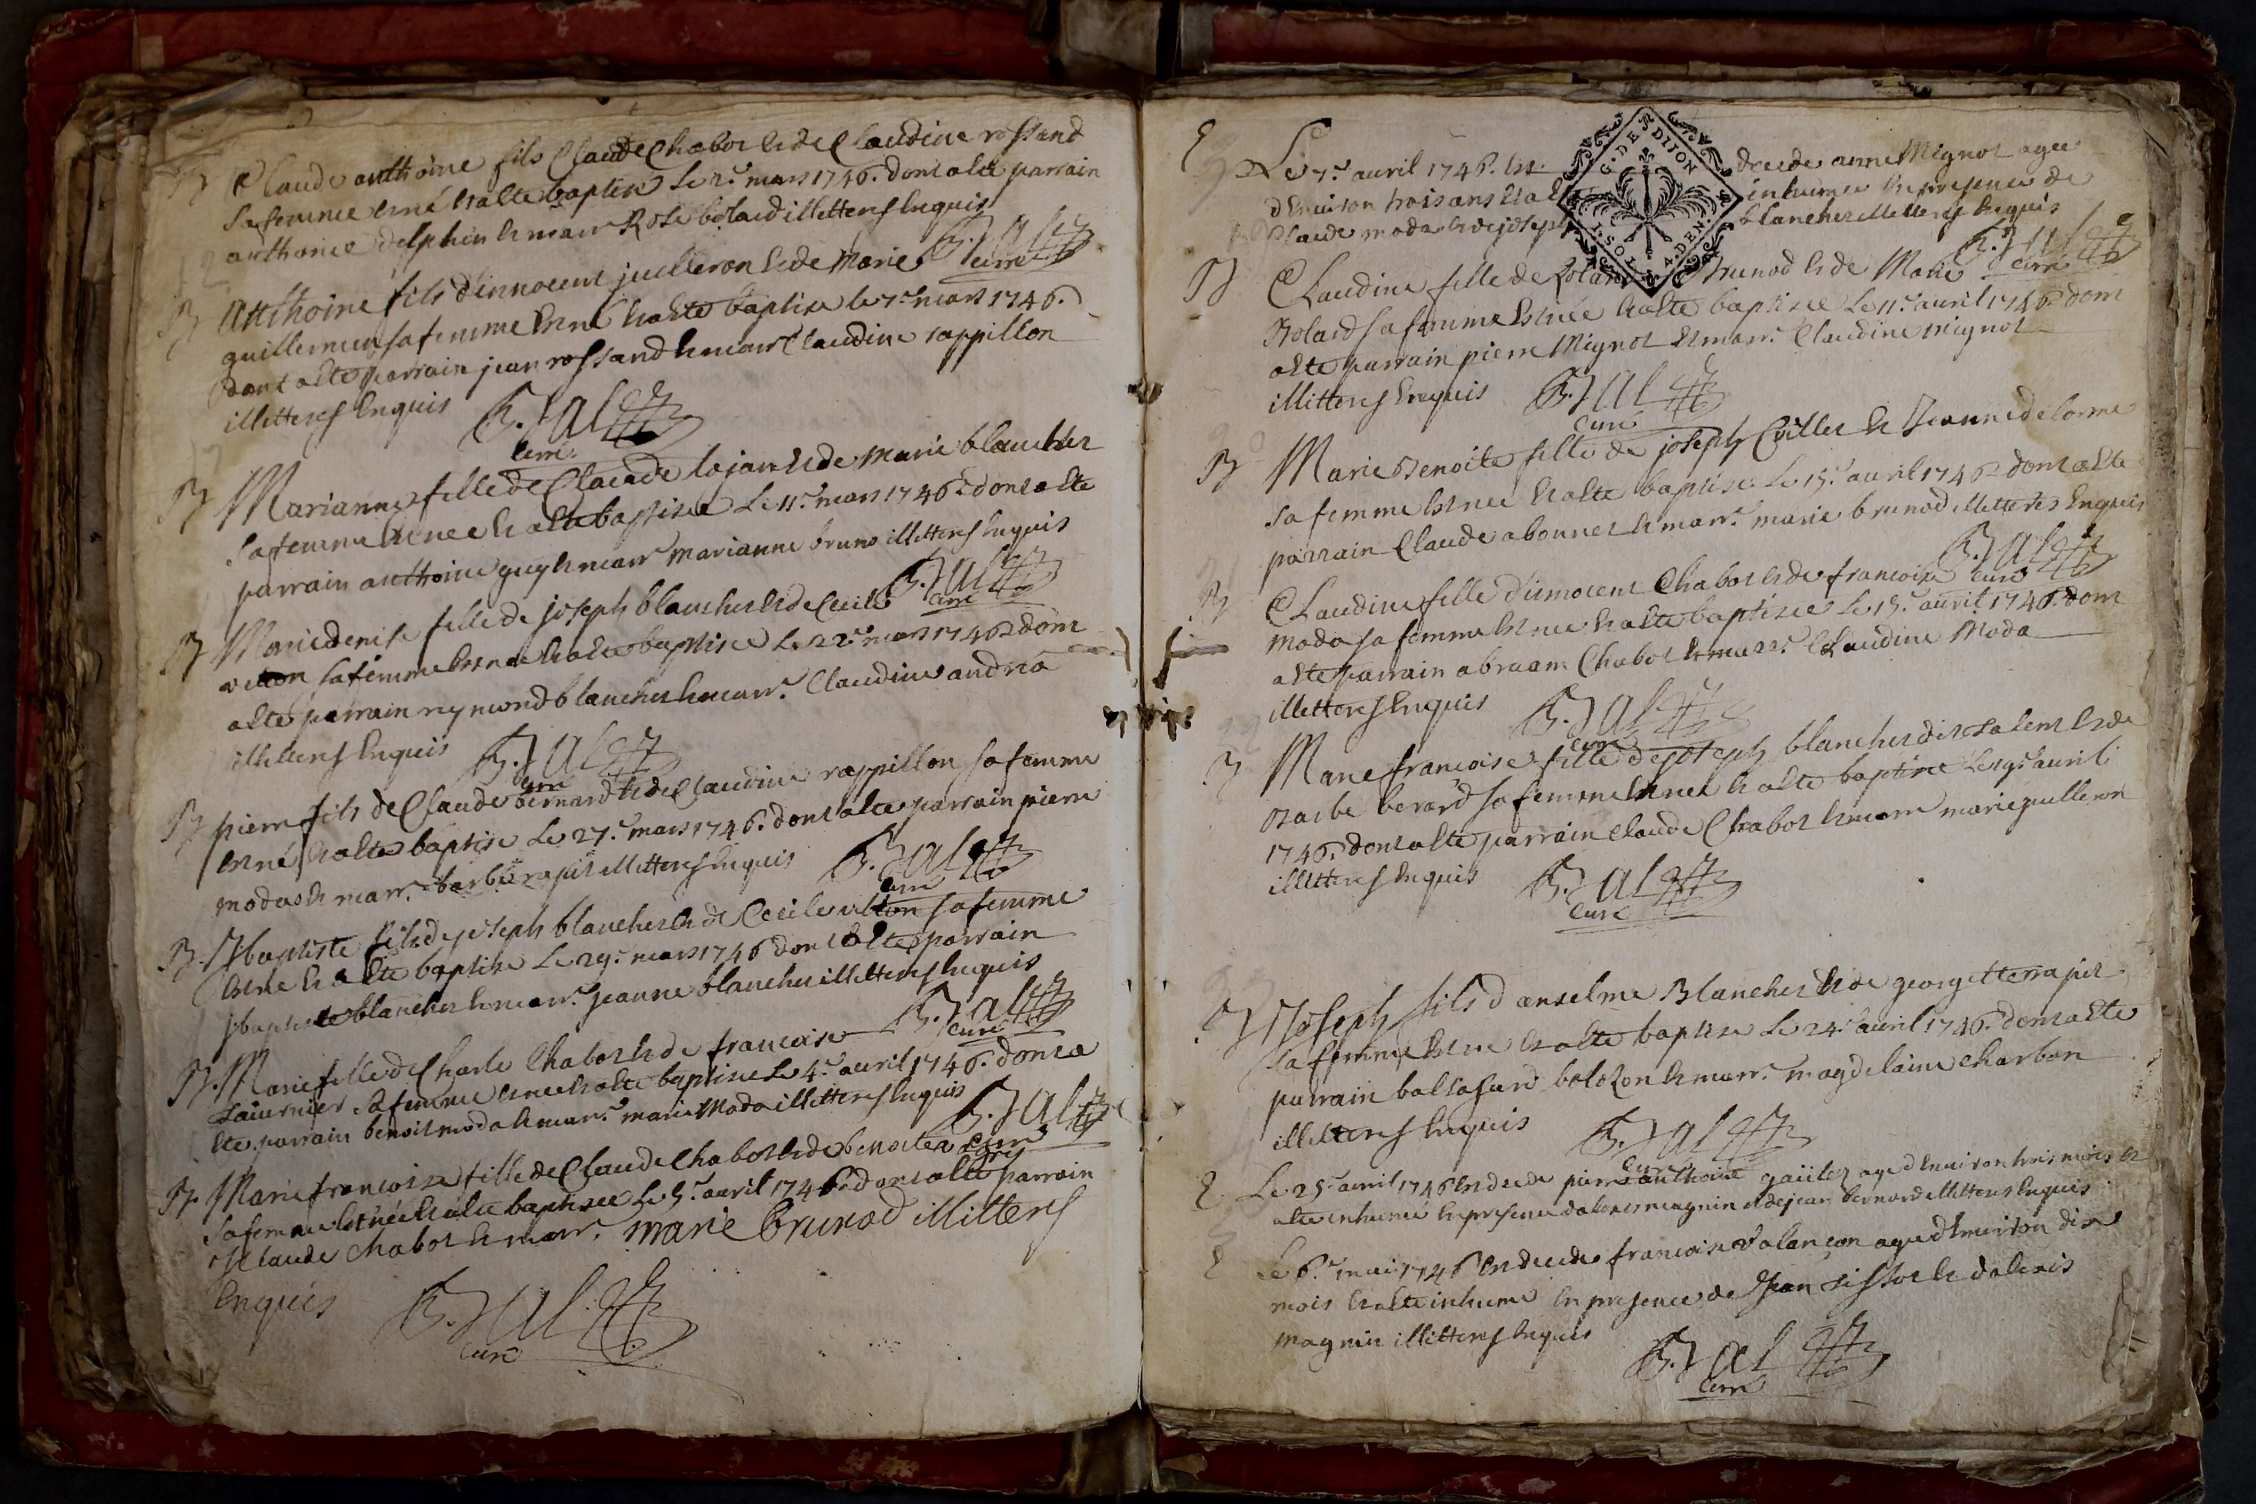 B Claude anthoine fils Claude Chabot et de Claudine rossand
sa femme est né et a été baptisé le 2.e mars 1746. dont a été parrain
anthoine delphin et marr Rose bolard illitterés enquis
B. Jal
curé
B Anthoine fils d'innocent juilleron et de Marie
guillermin sa femme est né et a été baptisé le 7.e mars 1746.
dont a été parrain jean rossand et marr Claudine rappillon
illitterés enquis B. Jal
curé
B Marianne fille de Claude lojan et de marie blanchet
sa femme est née et a été baptisée le 11.e mars 1746. dont a été
parrain anthoine guy et marr marianne bruno illitterés enquis
B. Jal
curé
B Marie denise fille de joseph blanchet et de Cecile
vuton sa femme est née et a été baptisée le 22.e mars 1746. dont
a été parrain reymond blanchet et marr.e Claudine andréa
illitterés enquis B. Jal
curé
B pierre fils de Claude bernard et de Claudine rappillon sa femme
est né et a été baptisé le 27.e mars 1746. dont a été parrain pierre
modas et marr.e barbe rapit illitterés enquis B. Jal
curé
B. Jbaptiste fils de joseph blanchet et de Cecile vuton sa femme
est né et a été baptisé le 29.e mars 1746 dont a été parrain
jbaptiste blanchet et marr.e jeanne blanchet illitterés enquis
B. Jal
curé
B. Marie fille de Charle Chabot et de francoise
sa femme est née et a été baptisée le 4.e avril 1746. dont a
été parrain benoit moda et marr.e marie Moda illitterés enquis
B. Jal
curé
B. Marie francoise fille de Claude Chabot et de benoite
sa femme est née et a été baptisée le 5.e avril 1746. dont a été parrain
Claude Chabot et marr.e marie brunod illitterés
enquis B. Jal
curé
E Le 7.e avril 1746. est decede anne Mignot agee
d'environ trois ans et a été inhumée en presence de
Claude moda et de joseph blanchet illitterés enquis
B. Jal
curé
G. DE DIJON
1. SOL 4. DEN.
B Claudine fille de Roland brunod et de Marie
Bolard sa femme est née et a été baptisée le 11.e avril 1746. dont
a été parrain pierre Mignot et marr.e Claudine mignot
illitterés enquis B. Jal
curé
B Marie Benoite fille de joseph Cuillet et Jeanne de lorme
sa femme est née et a été baptisée le 15.e avril 1746. dont a été
parrain Claude abonnet et marr.e marie brunod illitterés enquis
B. Jal
curé
B Claudine fille d'innocent Chabot et de francoise
moda sa femme est née et a été baptisée le 15.e avril 1746. dont
a été parrain abraam Chabot et marr.e Claudine Moda
illitterés enquis B. Jal
curé
B Marie francoise fille de joseph blanchet dit salent et de
barbe berard sa femme est née et a été baptisée le 19.e avril
1746. dont a été parrain Claude Chabot et marr marie guilleron
illitterés enquis B. Jal
curé
B Joseph fils d'anselme Blanchet et de georgette rapit
sa femme est né et a été baptisé le 24.e avril 1746. dont a été
parrain baltasard bolozon et marr.e magdelaine charbon
illitterés enquis B. Jal
curé
E Le 25.e avril 1746 est decede pierre anthoine agé d'environ trois mois et
a été inhumé en presence d'alexis magnin et de jean bernard illitterés enquis
E Le 6.e mai 1746 est decedee francoise Valançon agee d'environ dix
mois et a été inhumé en presence de Jean tissot et d'alexis
magnin illitterés enquis B. Jal
curé